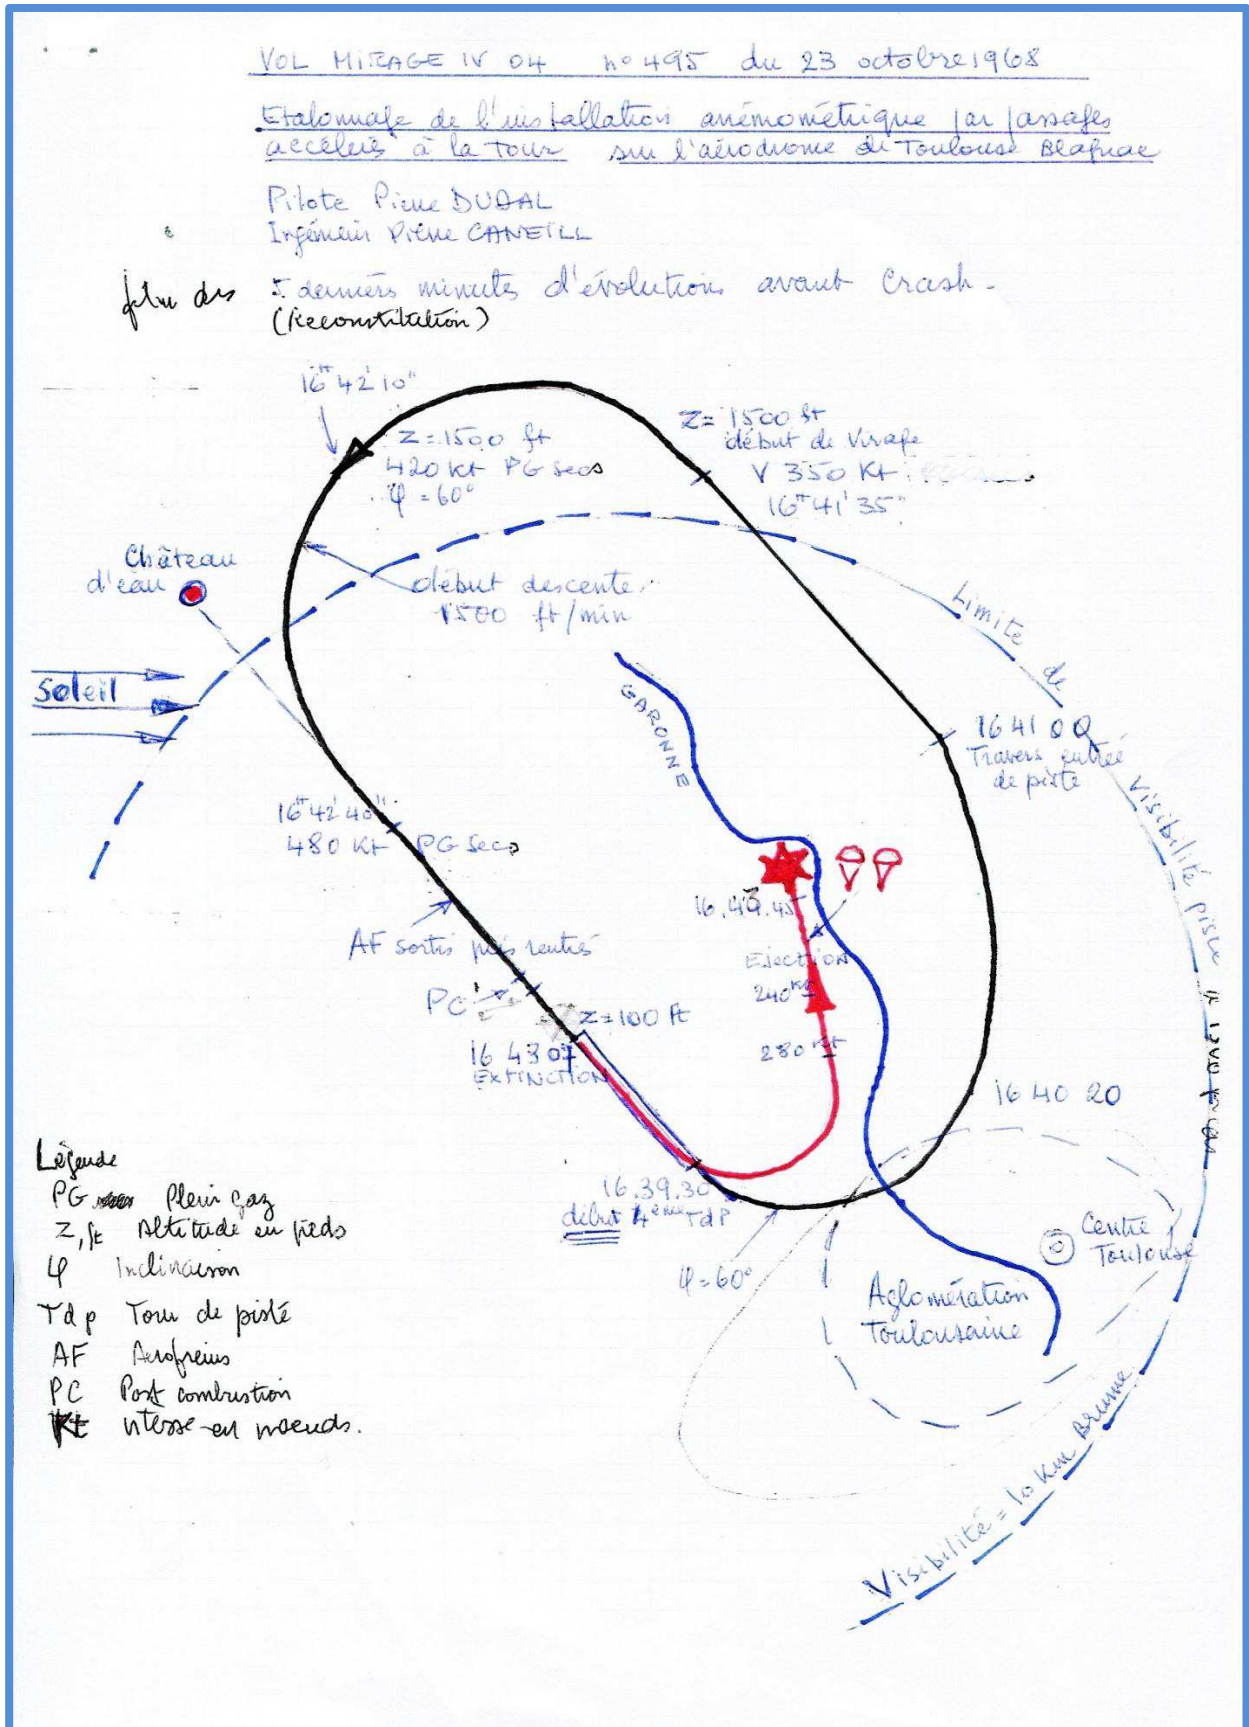 VOL MIRAGE IV 04 n° 495 du 23 octobre 1968
Etalonnage de l'installation anémométrique par passages
accélérés à la Tour sur l'aérodrome de Toulouse Blagnac
Pilote Pierre DUDAL
Ingénieur Pierre CANEILL
film des 5 dernières minutes d'évolutions avant Crash -
(Reconstitution)
16H 42' 10"
Z = 1500 ft
420 Kt PG Secs
φ = 60°
Z = 1500 ft
début de Virage
V 350 Kt
16H 41' 35"
Château
d'eau
début descente
1500 ft/min
Limite de
Visibilité piste
Soleil
GARONNE
16 41 00
Travers entrée
de piste
16H 42' 40"
480 Kt PG Secs
16.43.45
AF sortis puis rentrés
EJECTION
240 Kt
PC
Z = 100 ft
280 Kt
16 43 07
EXTINCTION
16 40 20
16.39.30
début 4ème TdP
φ = 60°
Centre
Toulouse
Aglomération
Toulousaine
Visibilité = 10 Km Brume
Légende
PG Plein gaz
Z, ft Altitude en pieds
φ Inclinaison
Tdp Tour de piste
AF Aerofreins
PC Post combustion
Kt vitesse en noeuds.